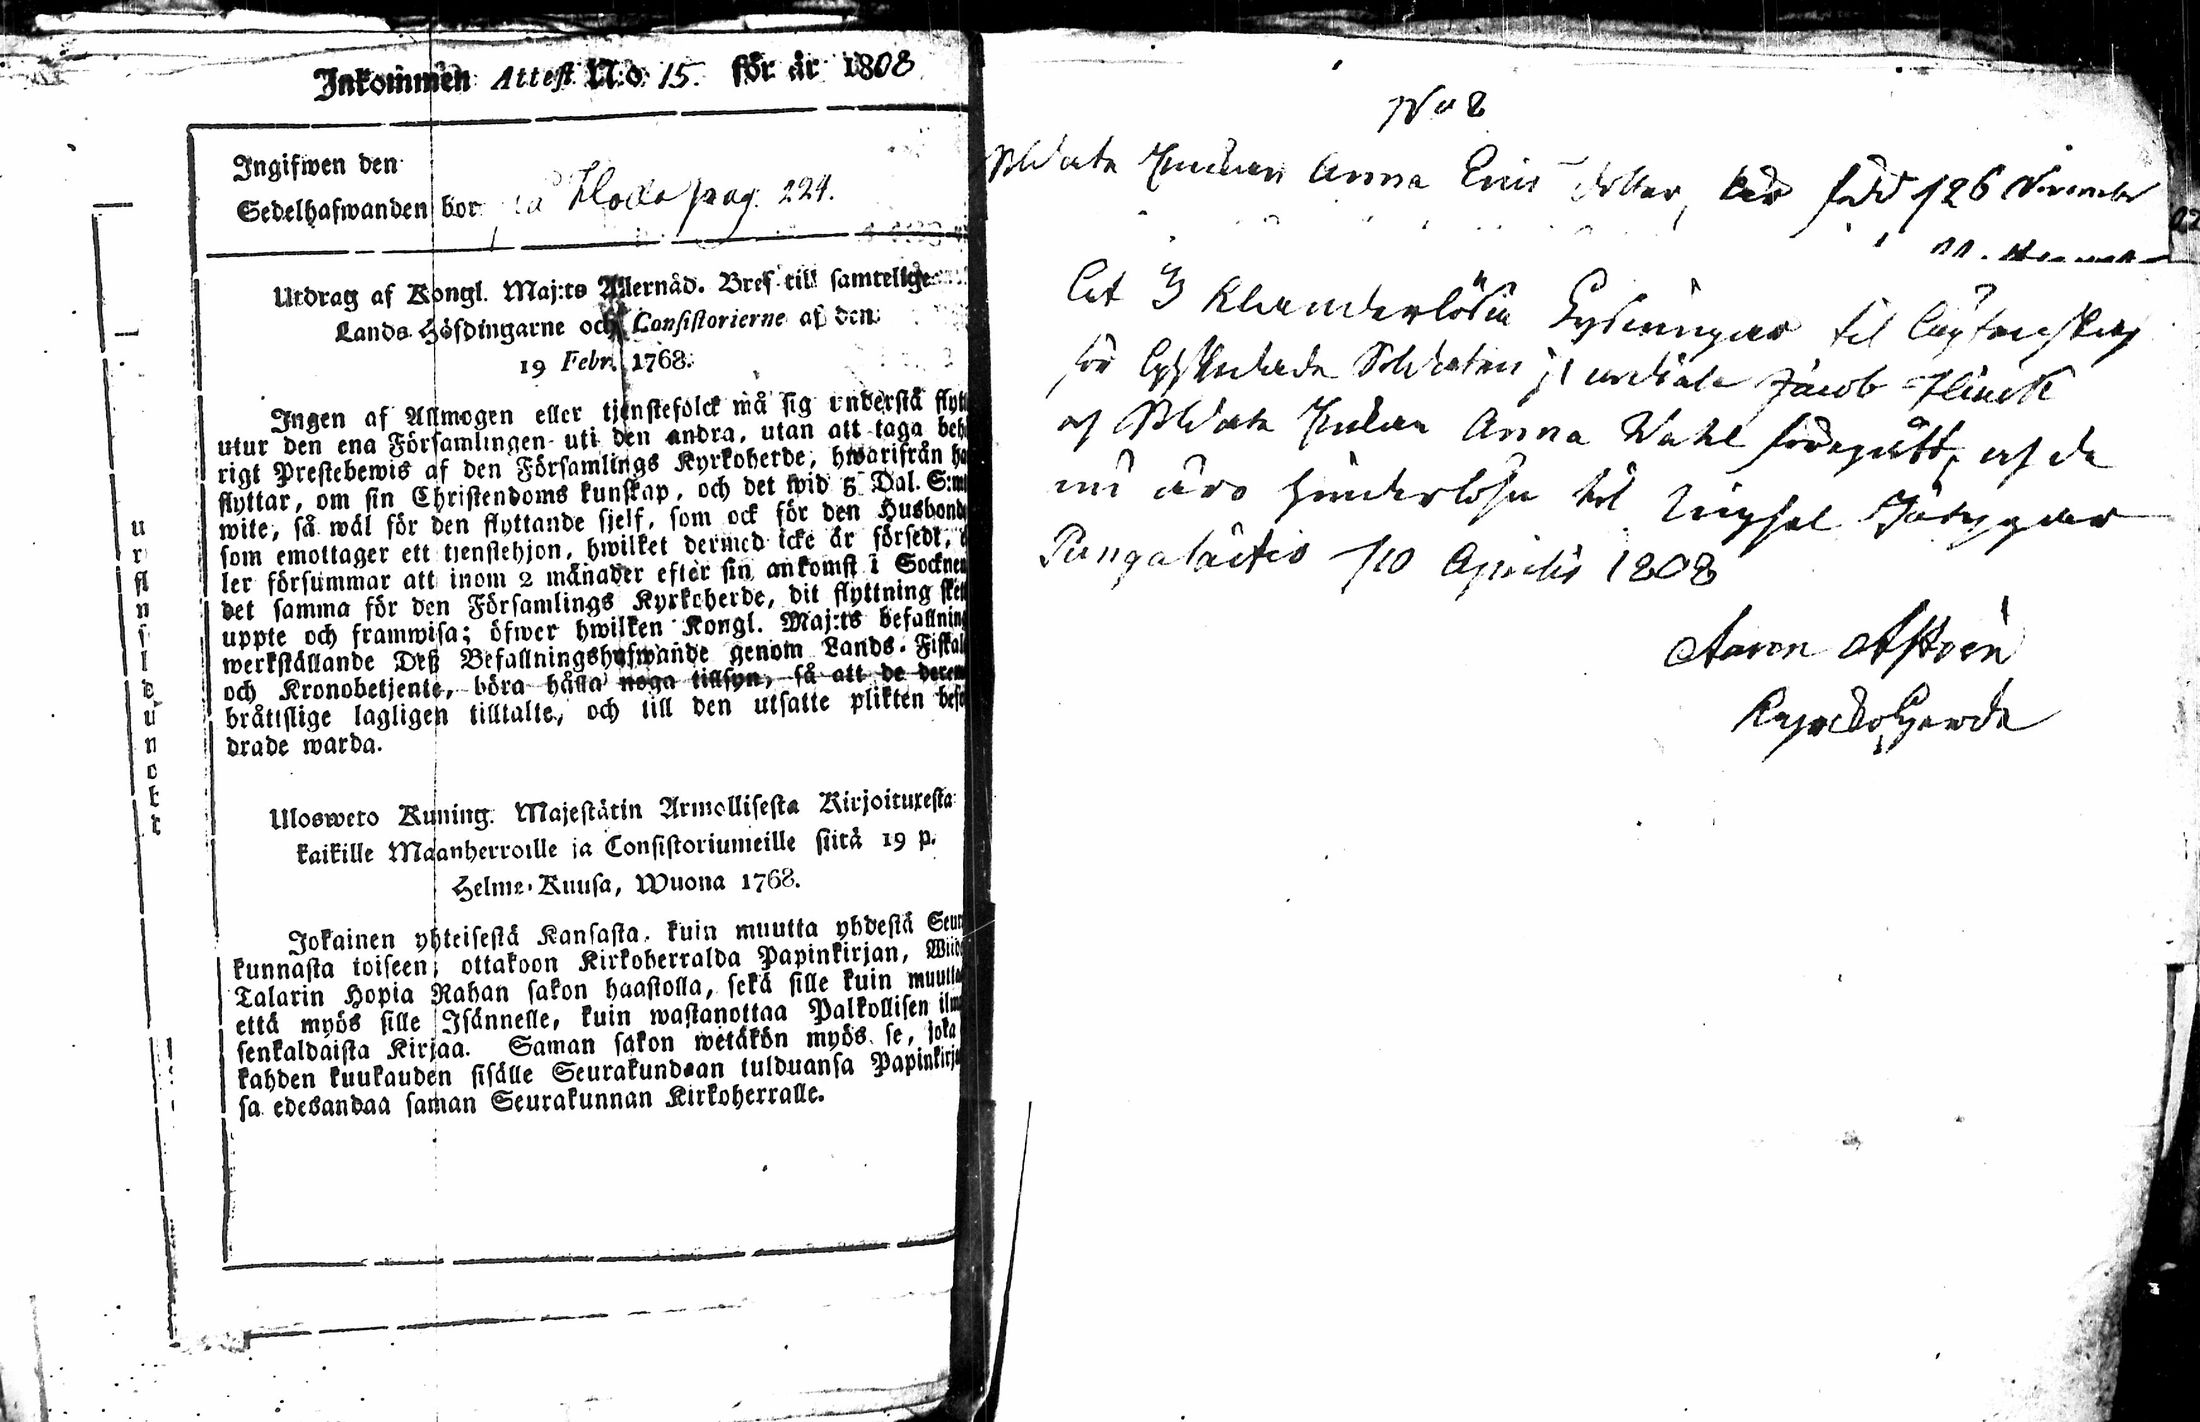 Inkommen Attest N:o 15. för år 1808
Ingifwen den
Sedelhafwanden bor på Floda pag. 224.
Utdrag af Kongl. Maj:ts Allernåd. Bref till samtelige
Lands-Höfdingarne och Consistorierne af den
19 Febr. 1768.
Ingen af Allmogen eller tjenstefolck må sig understå flytt
utur den ena Församlingen uti den andra, utan att taga behö
rigt Prestebewis af den Församlings Kyrkoherde, hwarifrån ha
flyttar, om sin Christendoms kunskap, och det wid 5 Dal. S:mt
wite, så wäl för den flyttande sjelf, som ock för den Husbonde
som emottager ett tjenstehjon, hwilket dermed icke är försedt,
ler försummar att inom 2 månader efter sin ankomst i Socknen
det samma för den Församlings Kyrkoherde, dit flyttning sked
uppte och framwisa; öfwer hwilken Kongl. Maj:ts befallning
werkställande Deß Befallningshafwande genom Lands-Fiskal
och Kronobetjente, böra hålla noga tillsyn, så att de derem
bråttslige lagligen tilltalte, och till den utsatte plikten befo
drade warda.
Ulosweto Kuning. Majestätin Armollisesta Kirjoituxesta
kaikille Maanherroille ja Consistoriumeille siitä 19 p.
Helme-Kuusa, Wuona 1768.
Jokainen yhteisestä Kansasta, kuin muutta yhdestä Seur
kunnasta toiseen, ottakoon Kirkoherralda Papinkirjan, Wiid
Talarin Hopia Rahan sakon haastolla, sekä sille kuin muutta
että myös sille Isännelle, kuin wastanottaa Palkollisen ilm
senkaldaista Kirjaa. Saman sakon wetäkön myös se, joka
kahden kuukauden sisälle Seurakundaan tulduansa Papinkirja
sa edesandaa saman Seurakunnan Kirkoherralle.
No 8
Soldats Enckan Anna Ers dotter, är född /26 November
Att 3 klanderlösa Lysningar til Ägtenskap
för afskedade Soldaten Jacob Flinck
och Soldats Enkan Anna Wahl föregått, at de
nu äro hinderlösa til
Pungalaitio /10 Aprilis 1808
Aaron
Kyrckoherde